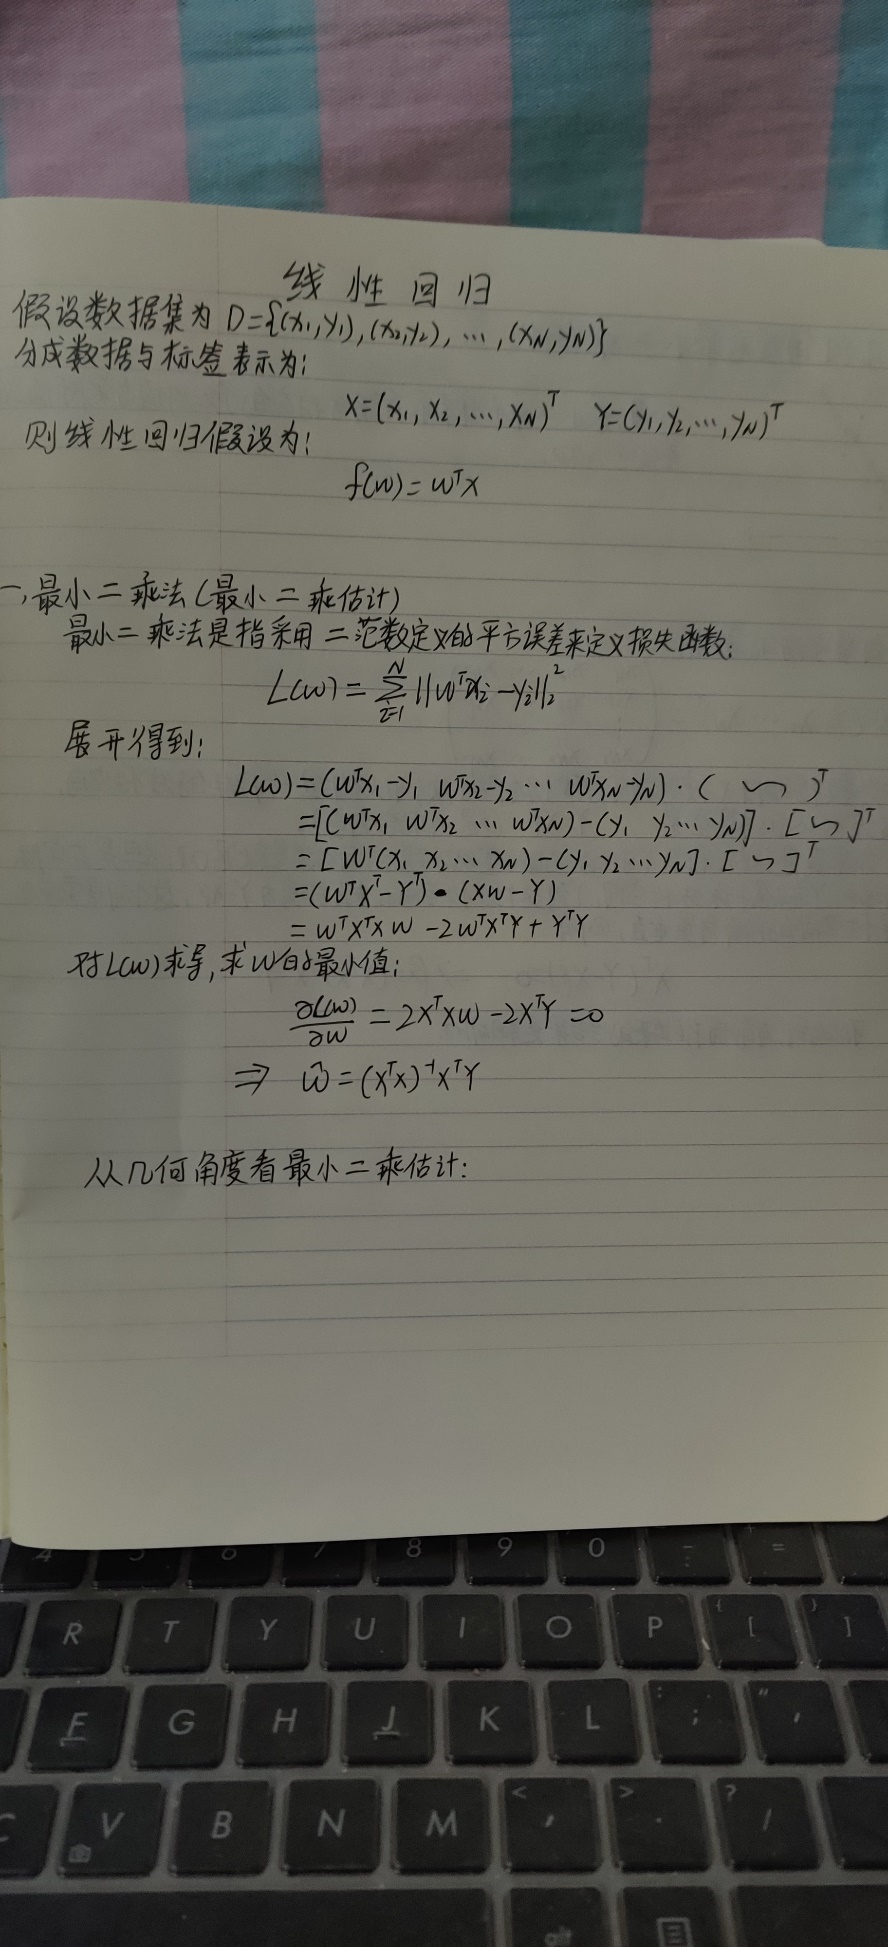 线性回归
假设数据集为 D={(x₁,y₁),(x₂,y₂),…,(x_N,y_N)}
分成数据与标签表示为:
X=(x₁,x₂,…,x_N)ᵀ Y=(y₁,y₂,…,y_N)ᵀ
则线性回归假设为:
f(w)=wᵀx
一,最小二乘法(最小二乘估计)
最小二乘法是指采用二范数定义的平方误差来定义损失函数:
L(w)=∑_{i=1}^{N}||wᵀx_i-y_i||₂²
展开得到:
L(w)=(wᵀx₁-y₁ wᵀx₂-y₂ … wᵀx_N-y_N)·( )ᵀ
=[(wᵀx₁ wᵀx₂ … wᵀx_N)-(y₁ y₂…y_N)]·[ ]ᵀ
=[wᵀ(x₁ x₂…x_N)-(y₁ y₂…y_N]·[ ]ᵀ
=(wᵀXᵀ-Yᵀ)·(Xw-Y)
=wᵀXᵀXw-2wᵀXᵀY+YᵀY
对L(w)求导,求w的最小值:
∂L(w)/∂w=2XᵀXw-2XᵀY=0
⇒ ŵ=(XᵀX)⁻¹XᵀY
从几何角度看最小二乘估计:
4 5 6 7 8 9 0 - =
R T Y U I O P { [ } ]
F G H J K L : ; " '
C V B N M < , > . ? /
alt